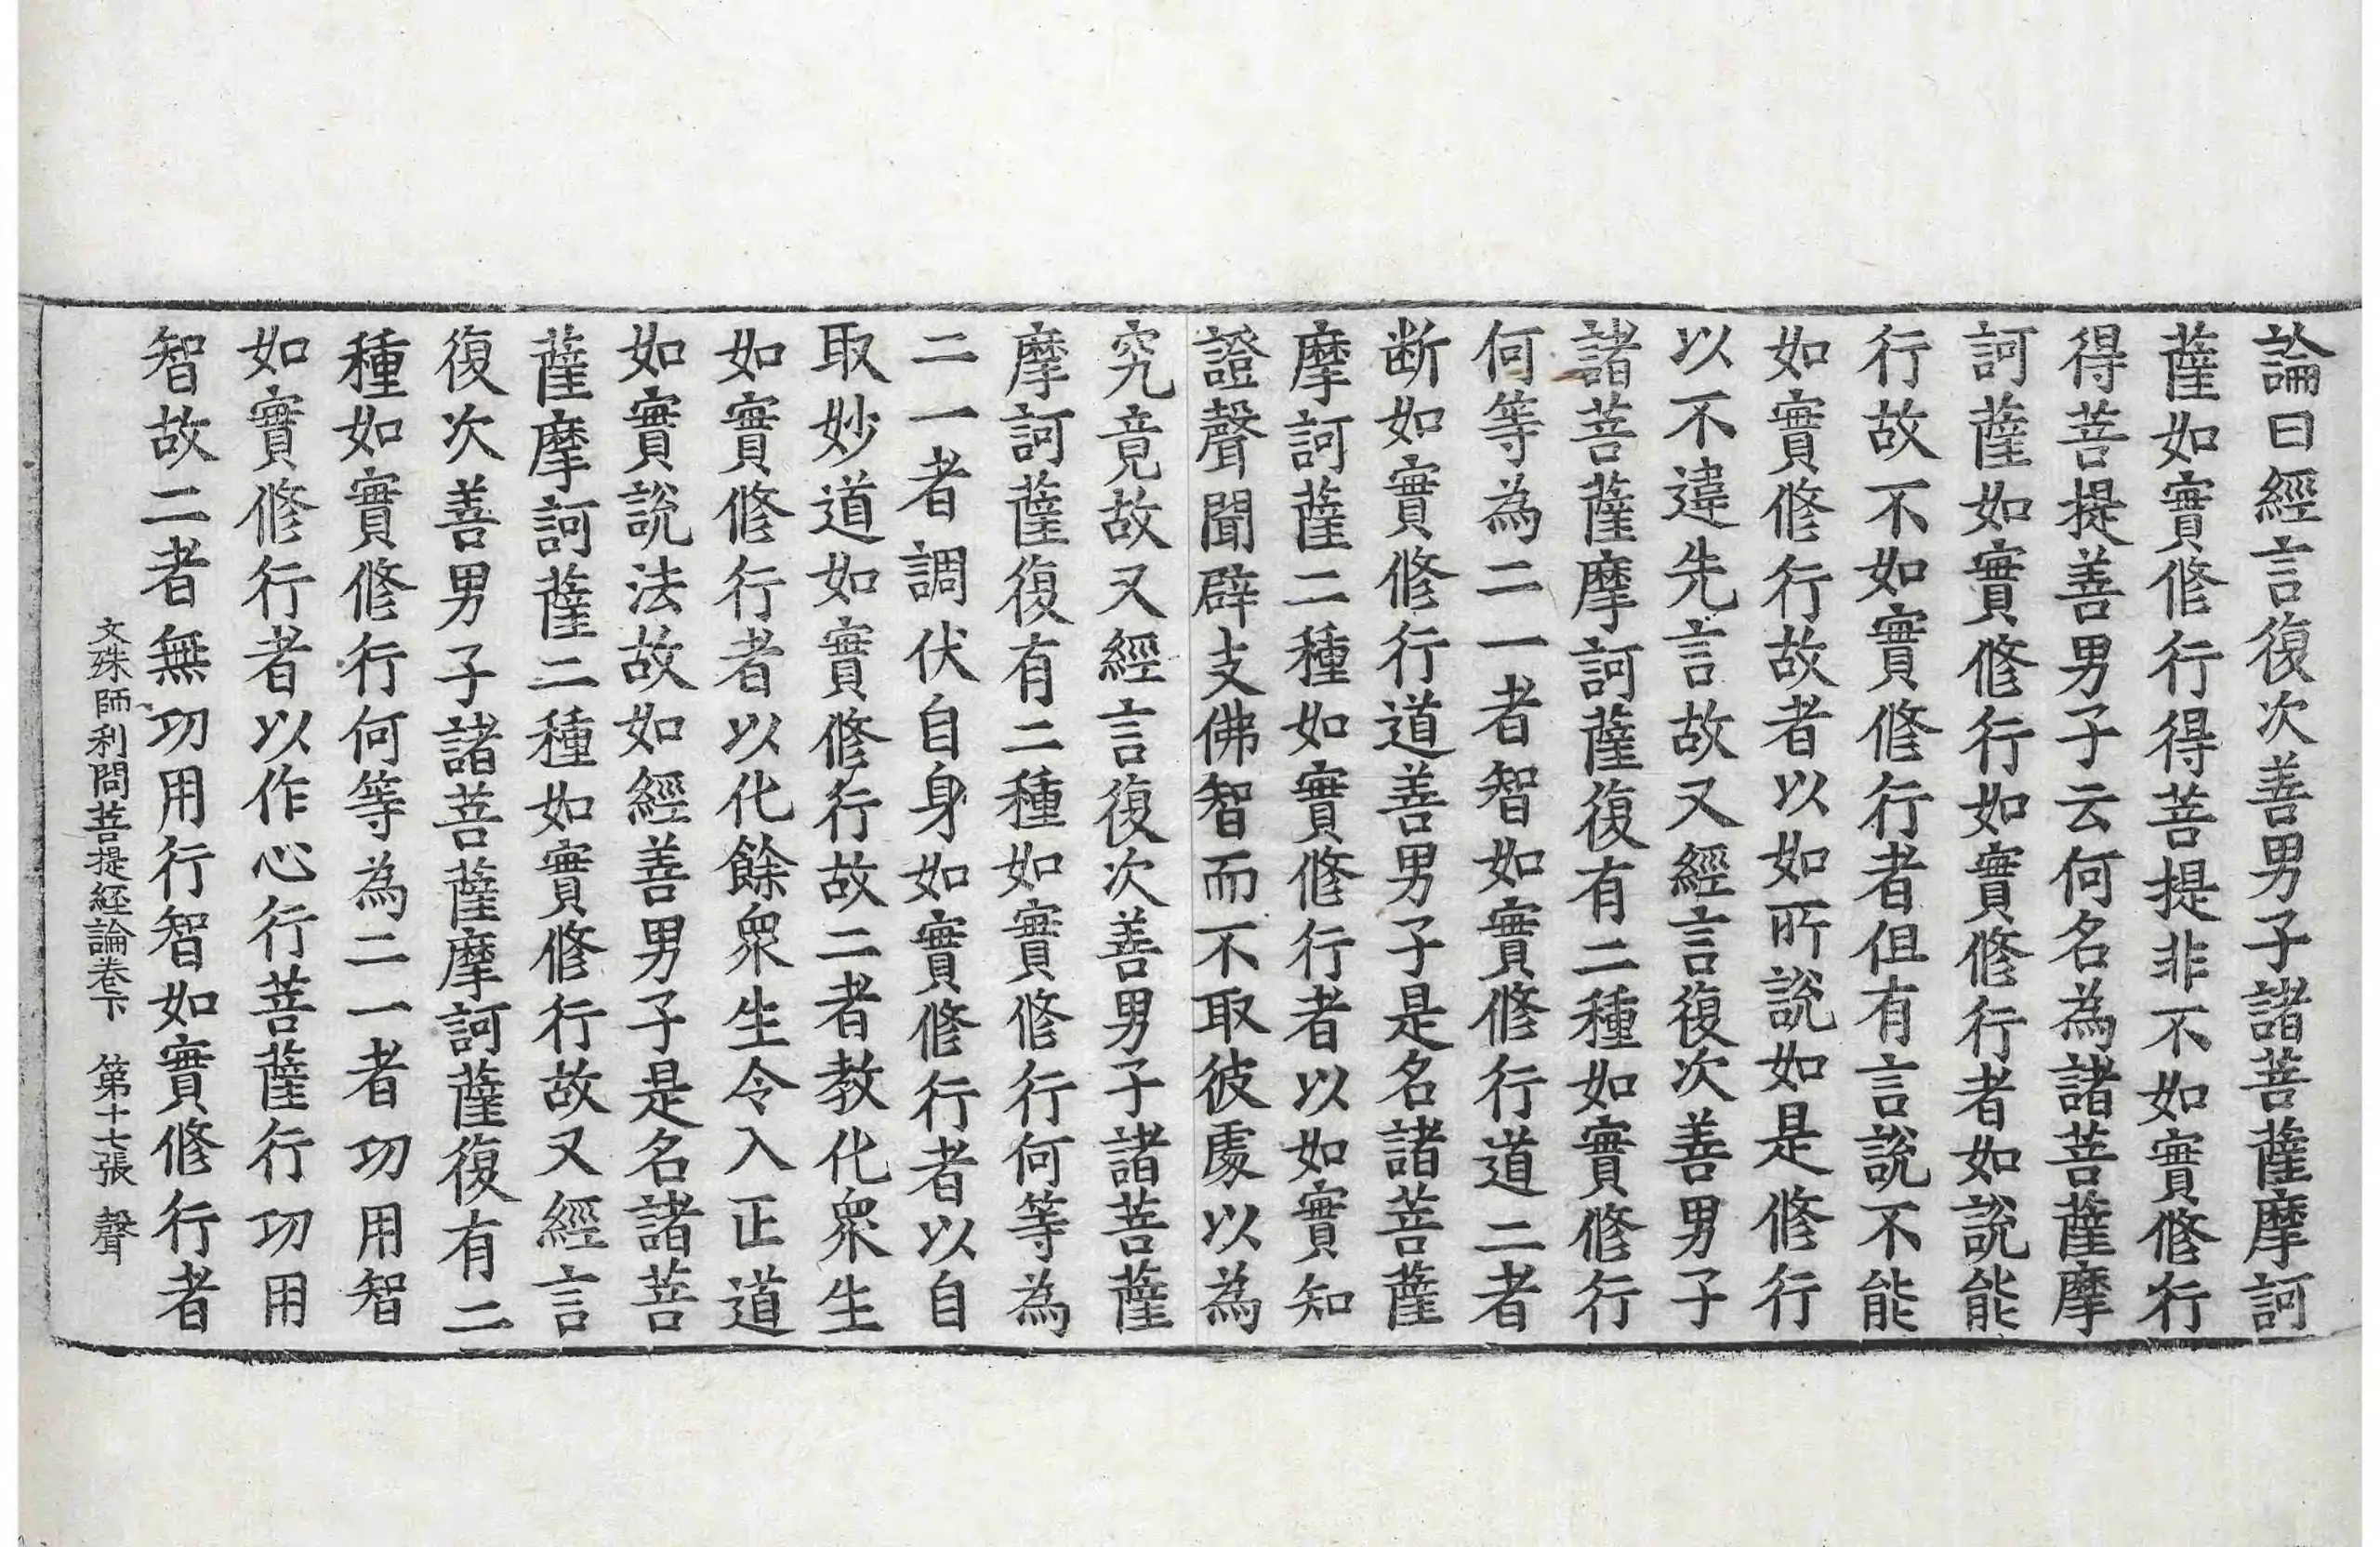 論曰經言復次善男子諸菩薩摩訶
薩如實修行得菩提非不如實修行
得菩提善男子云何名為諸菩薩摩
訶薩如實修行如實修行者如說能
行故不如實修行者但有言說不能
如實修行故者以如所說如是修行
以不違先言故又經言復次善男子
諸菩薩摩訶薩復有二種如實修行
何等為二一者智如實修行道二者
断如實修行道善男子是名諸菩薩
摩訶薩二種如實修行者以如實知
證聲聞辟支佛智而不取彼處以為
究竟故又經言復次善男子諸菩薩
摩訶薩復有二種如實修行何等為
二一者調伏自身如實修行者以自
取妙道如實修行故二者教化衆生
如實修行者以化餘衆生令入正道
如實說法故如經善男子是名諸菩
薩摩訶薩二種如實修行故又經言
復次善男子諸菩薩摩訶薩復有二
種如實修行何等為二一者功用智
如實修行者以作心行菩薩行功用
智故二者無功用行智如實修行者
文殊師利問菩提經論卷下　第十七張　聲